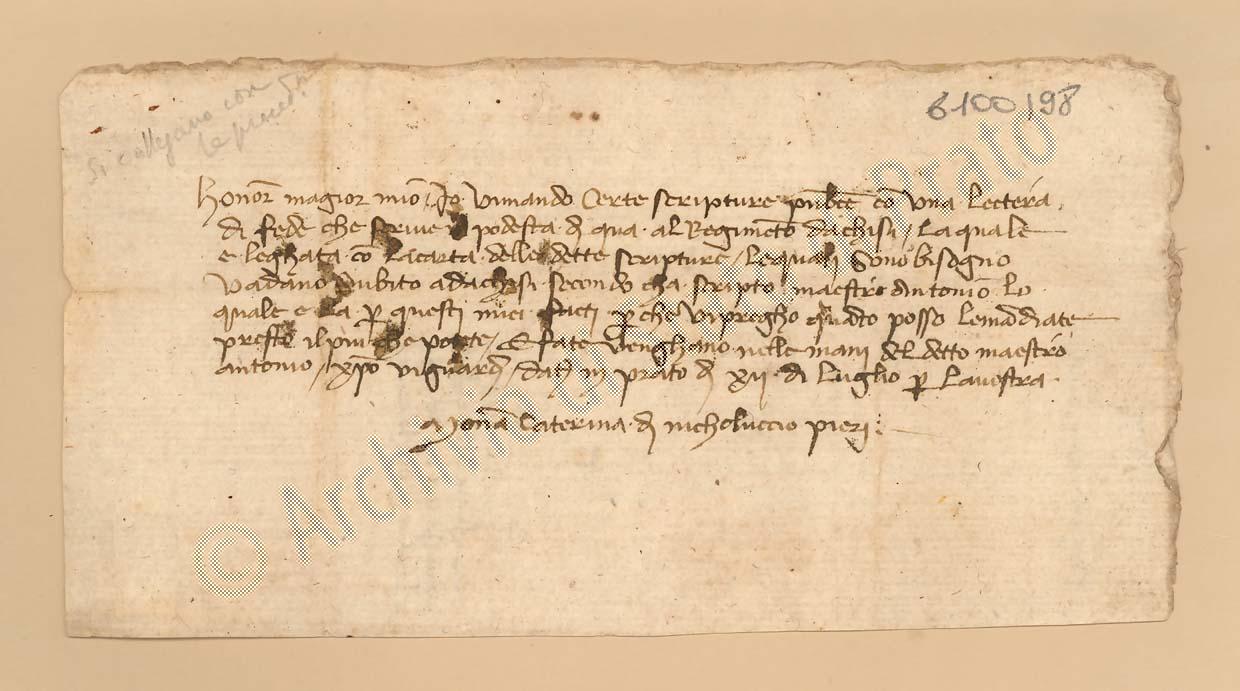 Si collegano con
le preced.ti
6100,198
Honor magior mio. Io vi mando Certe scripture publice co una lectera
di fede che scrive il podesta di qua al Regimeto dachisi / la quale
e leghata co la carta delle dette scripture / le quali sono bisogno
vadano subito adachisi secondo cha scripto maestro Antonio lo
quale e la p questi miei facti p che vi pregho quato posso le madiate
presto il piu che potete / E fate venghano nelle mani del detto maestro
antonio / xpo vi guardi / dat in prato di xii di Luglio p la vostra
Mona Caterina di nicholuccio pieri
© Archivio di Prato